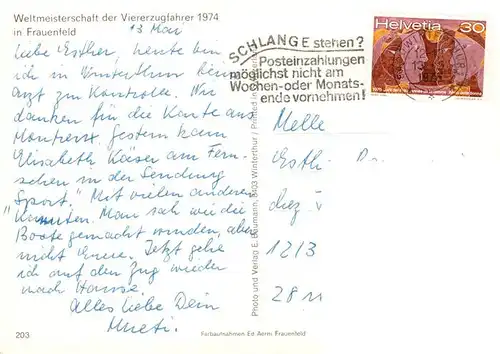 Weltmeisterschaft der Viererzugfahrer 1974
in Frauenfeld
13 Mai
Liebe Esther, heute bin
ich in Winterthur beim
arzt zur Kontrolle. Wir
danken für die Karte aus
Montreux. gestern kam
Elisabeth Käser am Fern-
sehen in der Sendung
Sport." Mit vielen anderen
Kanuten. Man sah wie die
Boote gemacht wurden, aber
nicht ihres. Jetzt gehe
ich auf den Zug wieder
nach Hause.
Alles liebe Dein
203
Farbaufnahmen Ed. Aerni Frauenfeld
Photo und Verlag E. Baumann, 8403 Winterthur / Printed in
SCHLANGE stehen?
Posteinzahlungen
möglichst nicht am
Wochen- oder Monats-
ende vornehmen!
Helvetia 30
Melle
Esth
diez
1213
28